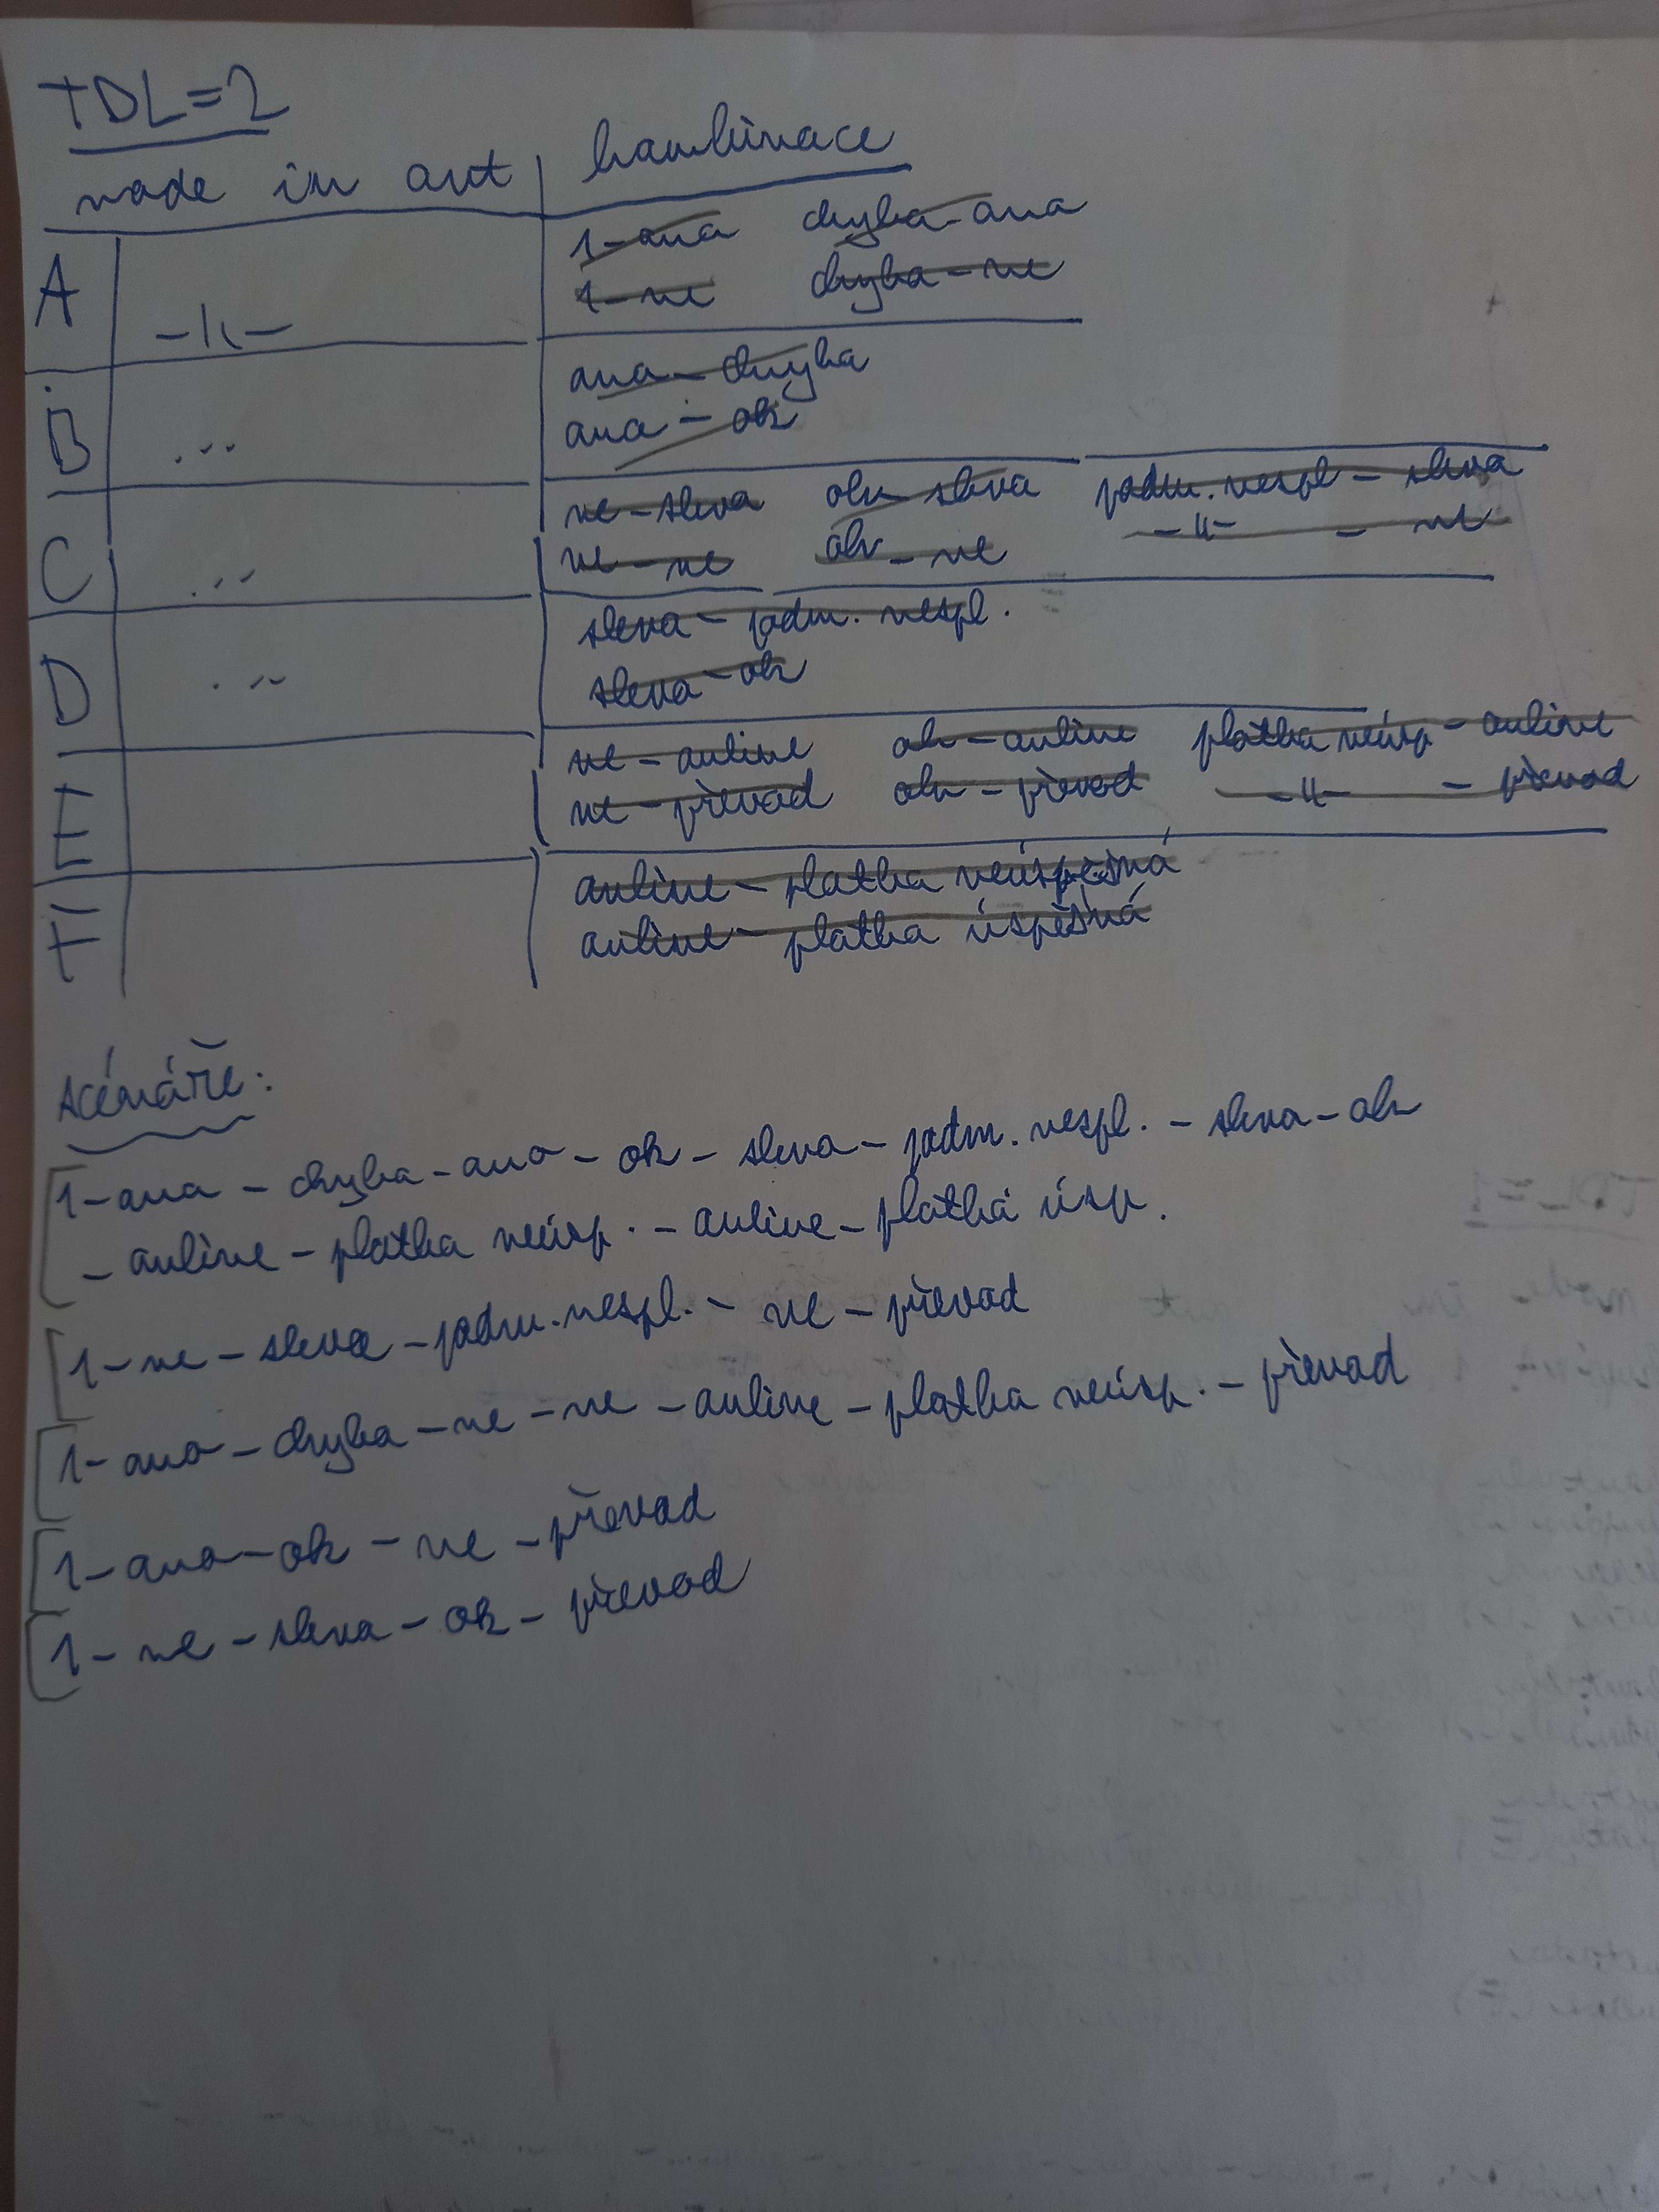 TDL=2
node in out | kombinace
A -||- 1-ano chyba-ano
1-ne chyba-ne
B ... ano-chyba
ano-ok
C ... ne-sleva ok-sleva podm. nespl-sleva
ne-ne ok-ne -||- - ne
D ... sleva-podm. nespl.
sleva-ok
E ne-online ok-online platba neúsp-online
ne-převod ok-převod -||- - převod
F online-platba neúspěšná
online-platba úspěšná
scénáře:
1-ano-chyba-ano-ok-sleva-podm. nespl.-sleva-ok
-online-platba neúsp.-online-platba úsp.
1-ne-sleva-podm. nespl.-ne-převod
1-ano-chyba-ne-ne-online-platba neúsp.-převod
1-ano-ok-ne-převod
1-ne-sleva-ok-převod
TDL=1